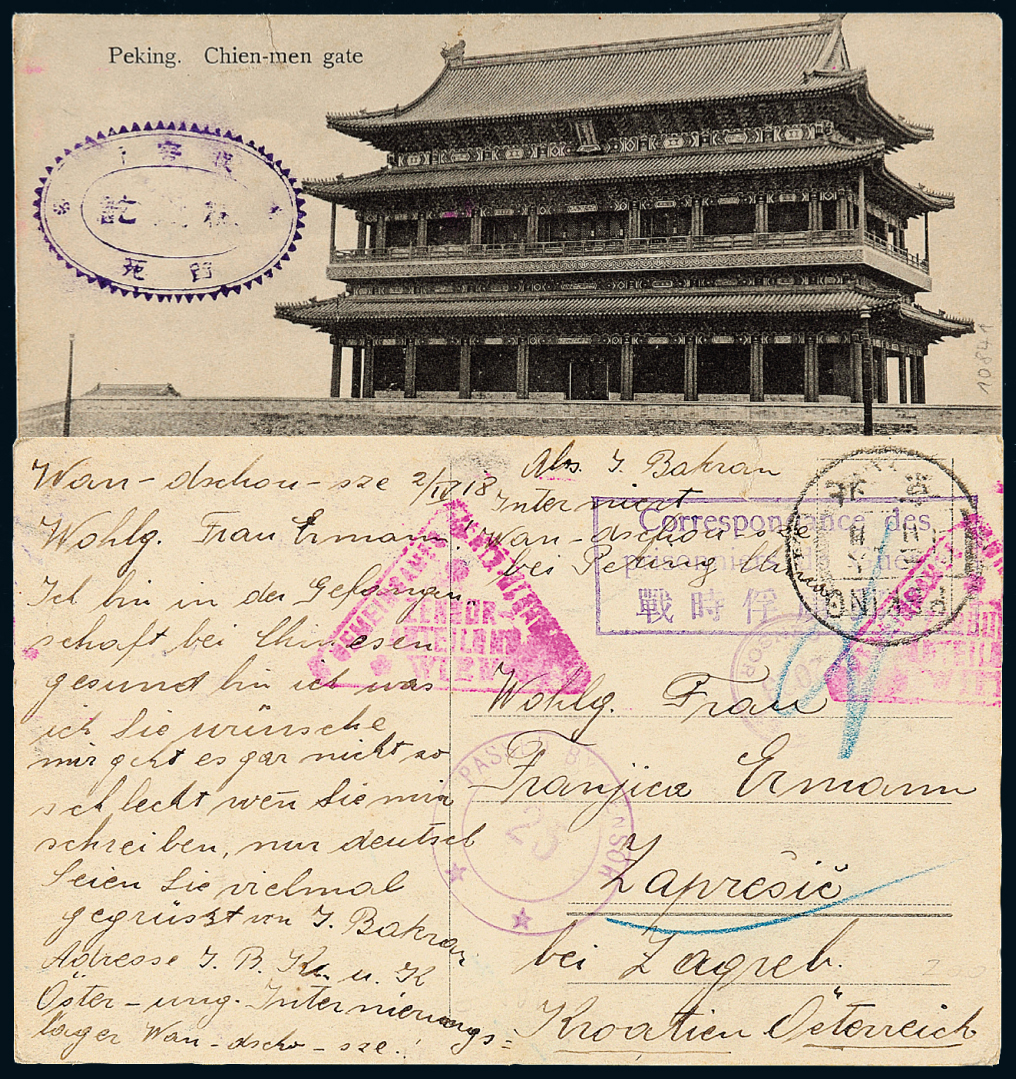 Peking. Chien-men gate
10841
Wan-dschou-sze 2/IV 18
Wohlg. Frau Ermann!
Ich bin in der Gefangen
schaft bei Chinesen
gesund bin ich was
ich Sie wünsche
mir geht es gar nicht so
schlecht wen̄ Sie mir
schreiben, nur deutsch
Seien Sie vielmal
gegrüszt von J. Bakran
Adresse J. B. K. u. K
Öster-ung. Internierungs=
lager Wan-dscho-sze.!
Abs. J. Bakran
Interniert
Wan-dschou-sze
bei Peking China
Correspondance des
prisonniers de guerre
戰時俘
PEKING
GEMEINSAMES ZENTRAL
ZENSOR-
ABTEILUNG
WIEN
ZENSOR-
ABTEILUNG
WIEN
PASSED BY CENSOR
23
Wohlg. Frau
Franjica Ermann
Zaprešić
bei Zagreb.
Kroatien Österreich
200